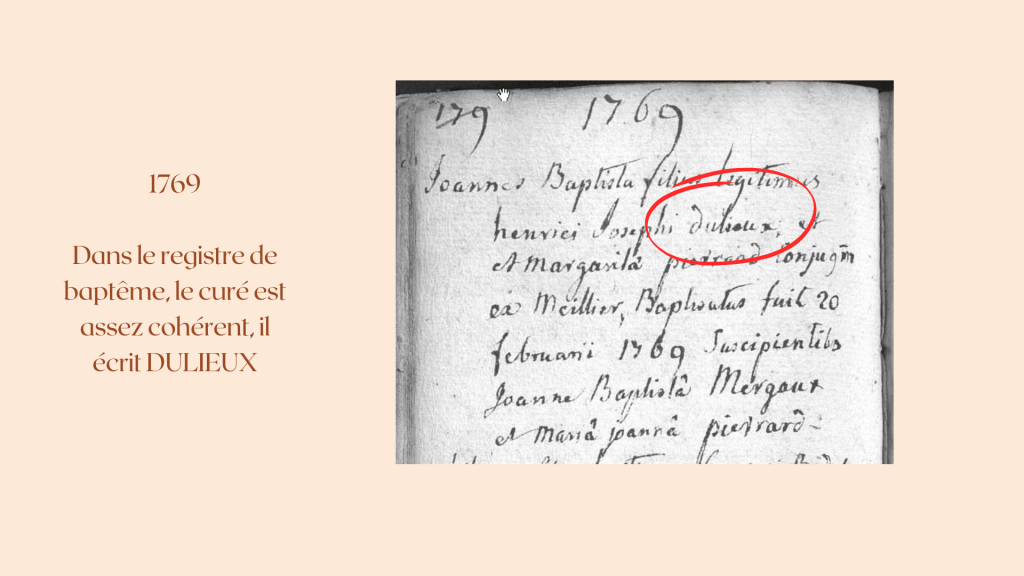 1769
Dans le registre de
baptême, le curé est
assez cohérent, il
écrit DULIEUX
179 1769
Joannes Baptista filius legitimus
henrici Josephi dulieux, et
et Margarita pierrard Conjugm
ex Meillier, Baptisatus fuit 20
februarii 1769 Suscipientibs
Joanne Baptistâ Mergaux
et Mariâ joannâ pierrard